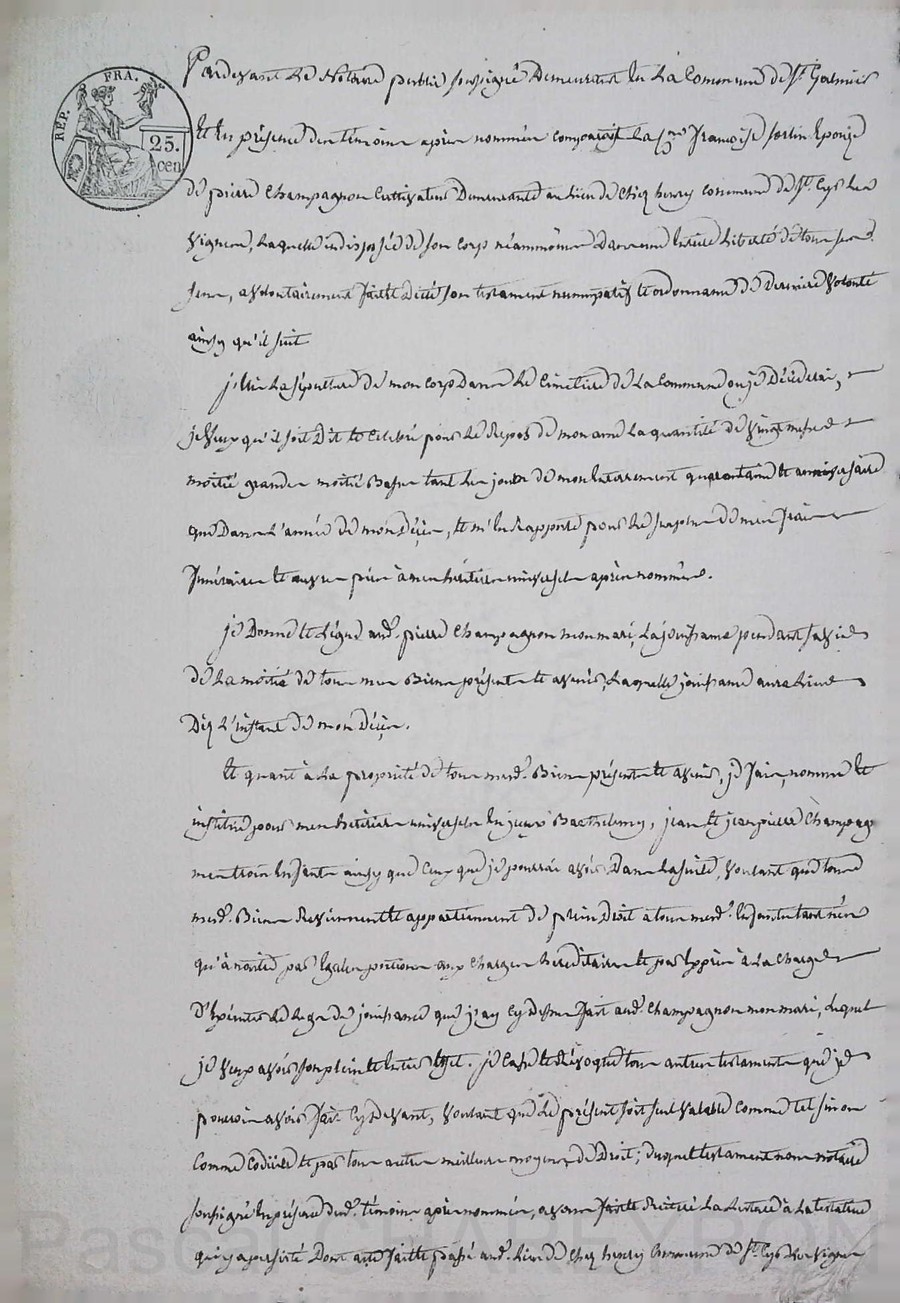 RÉP. FRA.
25. cen
Pardevant Le Notaire public soussigné Demeurant En La Commune de St. Galmier
Et En présence des témoins après nommés comparait La Cne françoise Sertin Epouze
de pierre Champagnon Cultivateur Demeurante au Lieu de Chez henry commune de St. Cyr Les
Vignes, Laquelle indisposée de son corp néammoins Dans une Entière Liberté de tous ses
sens, a volontairement fait et Dicté son testament nuncupatif et ordonnance de Dernière Volonté
ainsy qu'il suit
j'Elis La sépulture de mon corp Dans Le Cimetière de La Commune ou je Décéderai,
je Veux qu'il soit Dit et Célébré pour Le Repos de mon ame La quantité de Vingt messes
moitié grandes moitié Basses tant Les jours de mon Enterrement quarantaine et anniversaire
que Dans L'année de mon Décès, et m'En Rapporte pour Le surplus de mes frais
funéraires et œuvres pies à mes héritiers universels après nommés.
je Donne et Lègue aud. pierre Champagnon mon mari, La jouissance pendant sa vie
de La moitié de tous mes Biens présents et avenir, Laquelle jouissance aura Lieu
Dès L'instant de mon Décès.
Et quant à La propriété de tous mesd. Biens présents et avenir, je fais, nomme et
institue pour mes héritiers universels Barthelemy, jean et jean pierre Champag
mes trois Enfants ainsy que Ceux que je pourrai avoir Dans La suite, Voulant que tous
mesd. Biens Reviennent et appartiennent de plein Droit à tous mesd. Enfants tant nés
qu'à naitre par Egales portions aux Charges héréditaires et par Exprès à La Charge
D'Exécuter Le Legs de jouissance que j'ay Cy dessus fait aud. Champagnon mon mari, Lequel
je Veux avoir son plein et Entier Effet. je Casse et Révoque tous autres testaments que je
pourrois avoir fait Cy Devant, Voulant que Le présent soit seul Valable Comme tel sinon
Comme Codicile et par tous autres meilleurs moyens de Droit; duquel testament nous notaire
soussigné En présence desd. témoins après nommés, avons fait et Réitéré La Lecture à La testatrice
qui y a persisté Dont acte fait et passé aud. Lieu de Chez henry Commune de St. Cyr Les Vignes